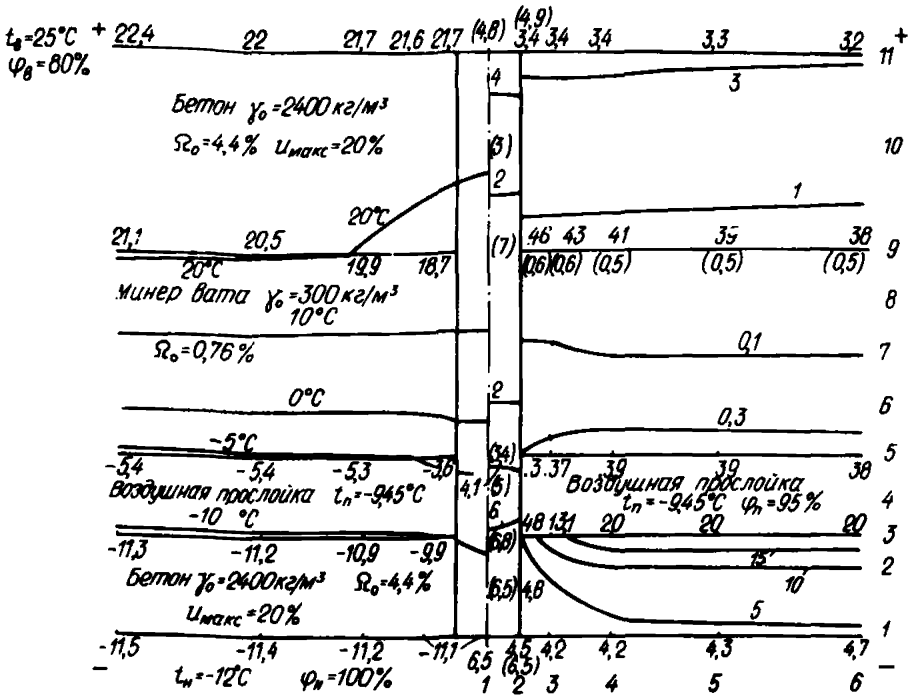 + 22,4 22 21,7 21,6 21,7 (4,8) (4,9) 3,4 3,4 3,4 3,3 3,2 +
tв=25°C
φв=80%
11
4 3
Бетон γ₀=2400 кг/м³
Ω₀=4,4% Uмакс=20%
(3) 10
2 1
20°C
21,1 20,5 19,9 18,7 (7) 46 43 41 39 38 9
20°C (0,6) (0,6) (0,5) (0,5) (0,5)
Минер вата γ₀=300 кг/м³
10°C
8
Ω₀=0,76%
0,1 7
0°C
2 6
0,3
-5°C
(34) 5
-5,4 -5,4 -5,3 -3,6 4,1 7 .3 .37 39 39 38
(5)
Воздушная прослойка tп=-945°C
Воздушная прослойка
tп=-945°C φп=95%
4
-10 °C
6 48 131 20 20 20 3
-11,3 -11,2 -10,9 -9,9 (6,8)
15 2
10
Бетон γ₀=2400кг/м³ Ω₀=4,4%
Uмакс=20%
(6,5) 4,8
5
1
-11,5 -11,4 -11,2 -11,1 6,5 4,5 (6,5) 4,2 4,2 4,3 4,7
− tн=-12°C φн=100% 1 2 3 4 5 6 −